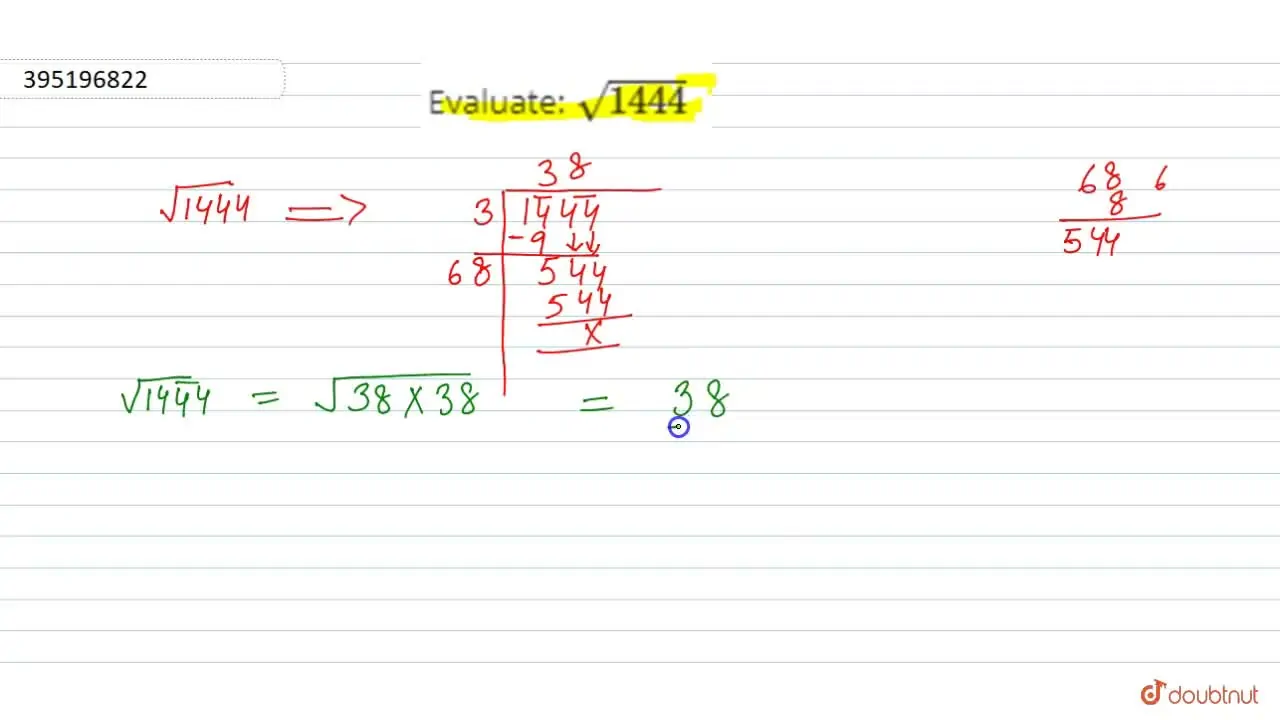 395196822
Evaluate: √1444
√1444 => 3 8
3 1444 68 6
- 9 ↓↓ 8
68 544 544
544
x
√1444 = √38 x 38 = 38
doubtnut